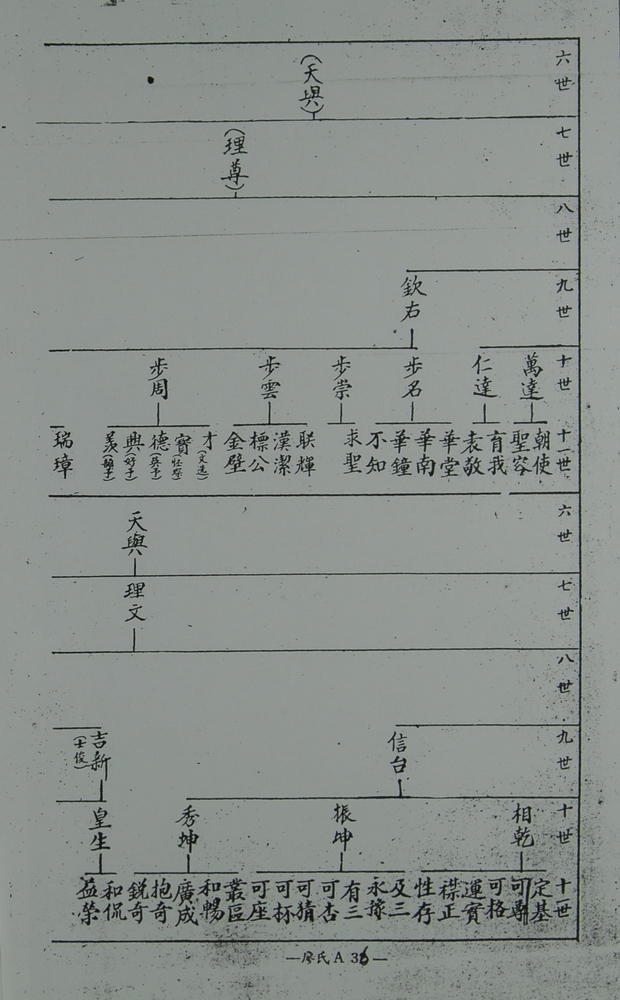 六世
(天與)
七世
(理尊)
八世
九世
欽右
十世
萬達
仁達
步名
步崇
步雲
步周
十一世
朝使
聖容
育我
表敬
華堂
華南
華鐘
不知
求聖
联輝
漢潔
標公
金壁
才(文选)
寶
德
興(好子)
羨
瑞璋
六世
天與
七世
理文
八世
九世
信台
吉新(士俊)
十世
相乾
振坤
秀坤
皇生
十一世
定基
可專
可格
運實
襟正
性存
及三
永操
有三
可杏
可猜
可杯
可座
叢區
和暢
廣成
抱奇
銳奇
和侃
益榮
—廖氏A 36—